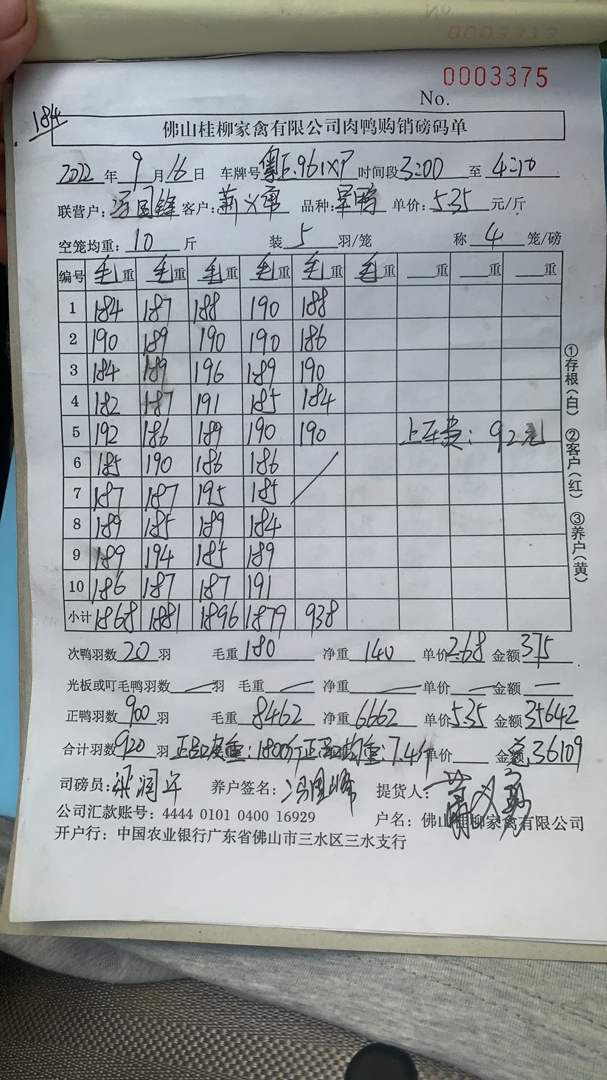 0003375
No.
184
佛山桂柳家禽有限公司肉鸭购销磅码单
2022 年 9 月 16 日 车牌号 粤E:961XP 时间段 3:00 至 4:10
联营户: 冯国锋 客户: 品种: 单价: 5.35 元/斤
空笼均重: 10 斤 装 5 羽/笼 称 4 笼/磅
编号 毛重 毛重 毛重 毛重 毛重 毛重 重 重 重
1 184 187 188 190 188
2 190 189 190 190 186
3 184 189 196 189 190
4 182 187 191 185 184
5 192 186 189 190 190 上车费: 92元
6 185 190 186 186
7 187 187 195 185
8 189 185 189 184
9 189 194 185 189
10 186 187 187 191
小计 1868 1881 1896 1879 938
①存根(白) ②客户(红) ③养户(黄)
次鸭羽数 20 羽 毛重 180 净重 140 单价 2.68 金额 375
光板或叮毛鸭羽数 — 羽 毛重 — 净重 — 单价 — 金额 —
正鸭羽数 900 羽 毛重 8462 净重 6662 单价 5.35 金额 35642
合计羽数 920 羽 正品皮重: 1800斤 正品均重: 7.4斤 单价 金额 36109
司磅员: 养户签名: 冯国锋 提货人:
公司汇款账号: 4444 0101 0400 16929 户名: 佛山桂柳家禽有限公司
开户行: 中国农业银行广东省佛山市三水区三水支行